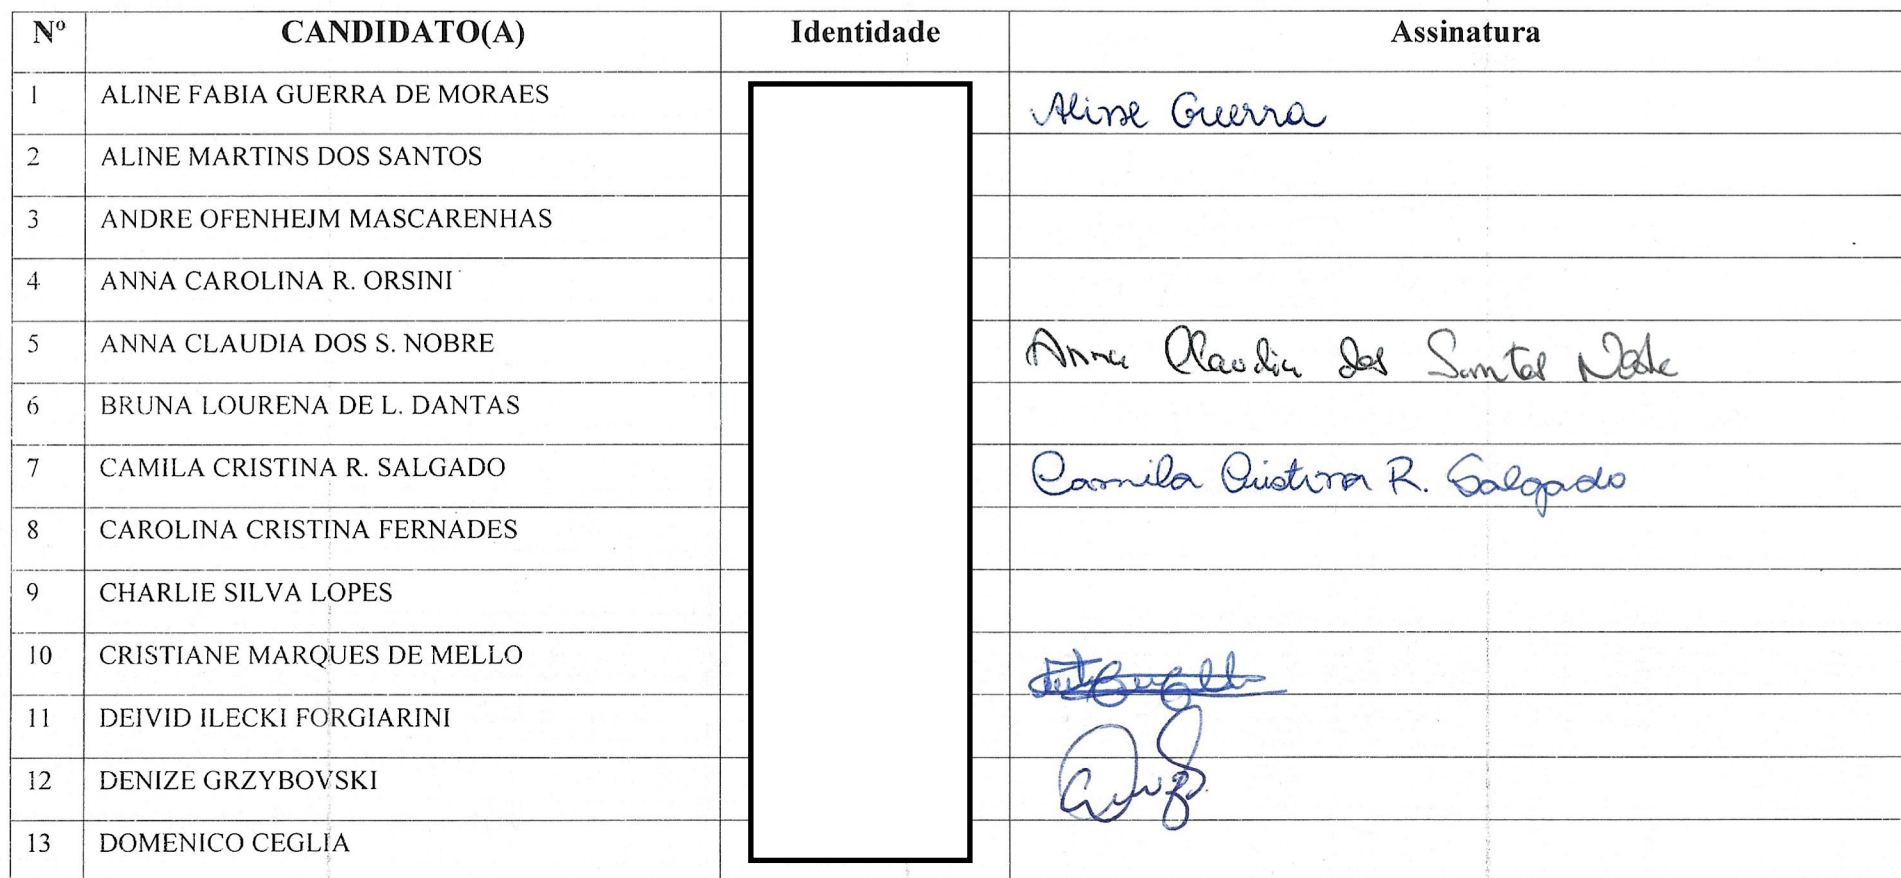 Nº CANDIDATO(A) Identidade Assinatura
1 ALINE FABIA GUERRA DE MORAES Aline Guerra
2 ALINE MARTINS DOS SANTOS
3 ANDRE OFENHEJM MASCARENHAS
4 ANNA CAROLINA R. ORSINI
5 ANNA CLAUDIA DOS S. NOBRE Anna Claudia dos Santos Nobre
6 BRUNA LOURENA DE L. DANTAS
7 CAMILA CRISTINA R. SALGADO Camila Cristina R. Salgado
8 CAROLINA CRISTINA FERNADES
9 CHARLIE SILVA LOPES
10 CRISTIANE MARQUES DE MELLO
11 DEIVID ILECKI FORGIARINI
12 DENIZE GRZYBOVSKI
13 DOMENICO CEGLIA